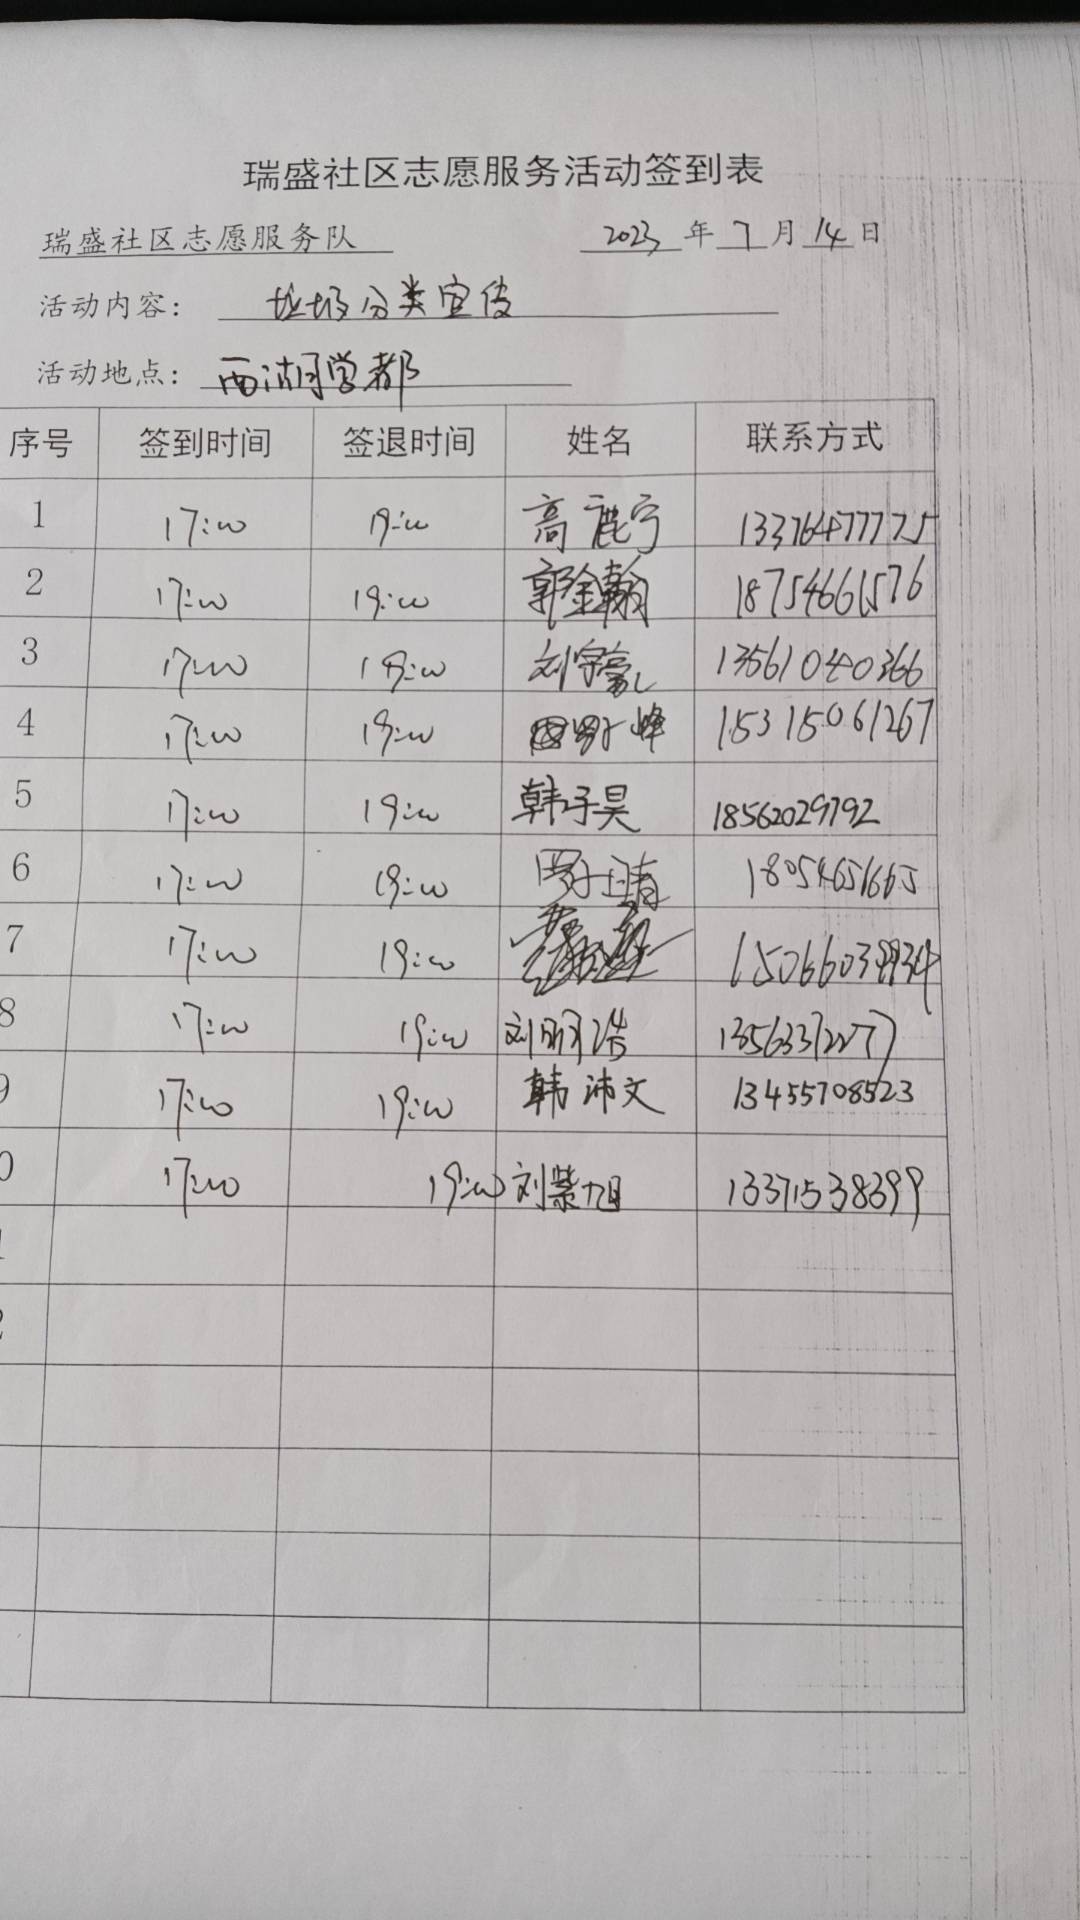 瑞盛社区志愿服务活动签到表
瑞盛社区志愿服务队 2023 年 7 月 14 日
活动内容： 垃圾分类宣传
活动地点： 西湖学都
序号 签到时间 签退时间 姓名 联系方式
1 17:00 19:00 高鹿宁 13376477775
2 17:00 19:00 郭金翰 18754661576
3 17:00 19:00 刘宇豪 13561040366
4 17:00 19:00 峰 15315061267
5 17:00 19:00 韩子昊 18562029792
6 17:00 19:00 18054651665
7 17:00 19:00
8 17:00 19:00 刘明浩 13563372277
9 17:00 19:00 韩沛文 13455708523
0 17:00 19:00 刘紫旭 13371538399